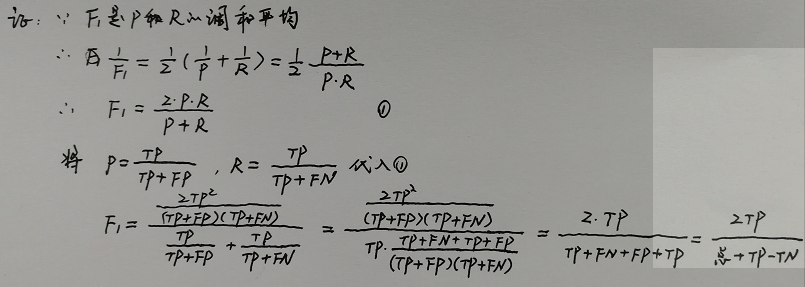 证: ∵ F₁是P和R的调和平均
∴ 1/F₁ = 1/2 (1/P + 1/R) = 1/2 · (P+R)/(P·R)
∴ F₁ = (2·P·R)/(P+R) ①
将 P = TP/(TP+FP) , R = TP/(TP+FN) 代入①
F₁ = (2TP²/((TP+FP)(TP+FN)))/(TP/(TP+FP) + TP/(TP+FN)) = (2TP²/((TP+FP)(TP+FN)))/(TP·(TP+FN+TP+FP)/((TP+FP)(TP+FN))) = (2·TP)/(TP+FN+FP+TP) = 2TP/(总+TP-TN)